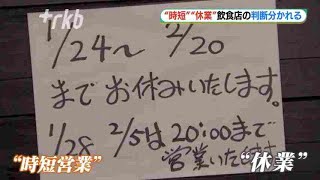 +rkb
"時短""休業"飲食店の判断分かれる
1/24～2/20
までお休みいたします。
1/28 2/5は20:00まで
営業いたします
"時短営業"
"休業"